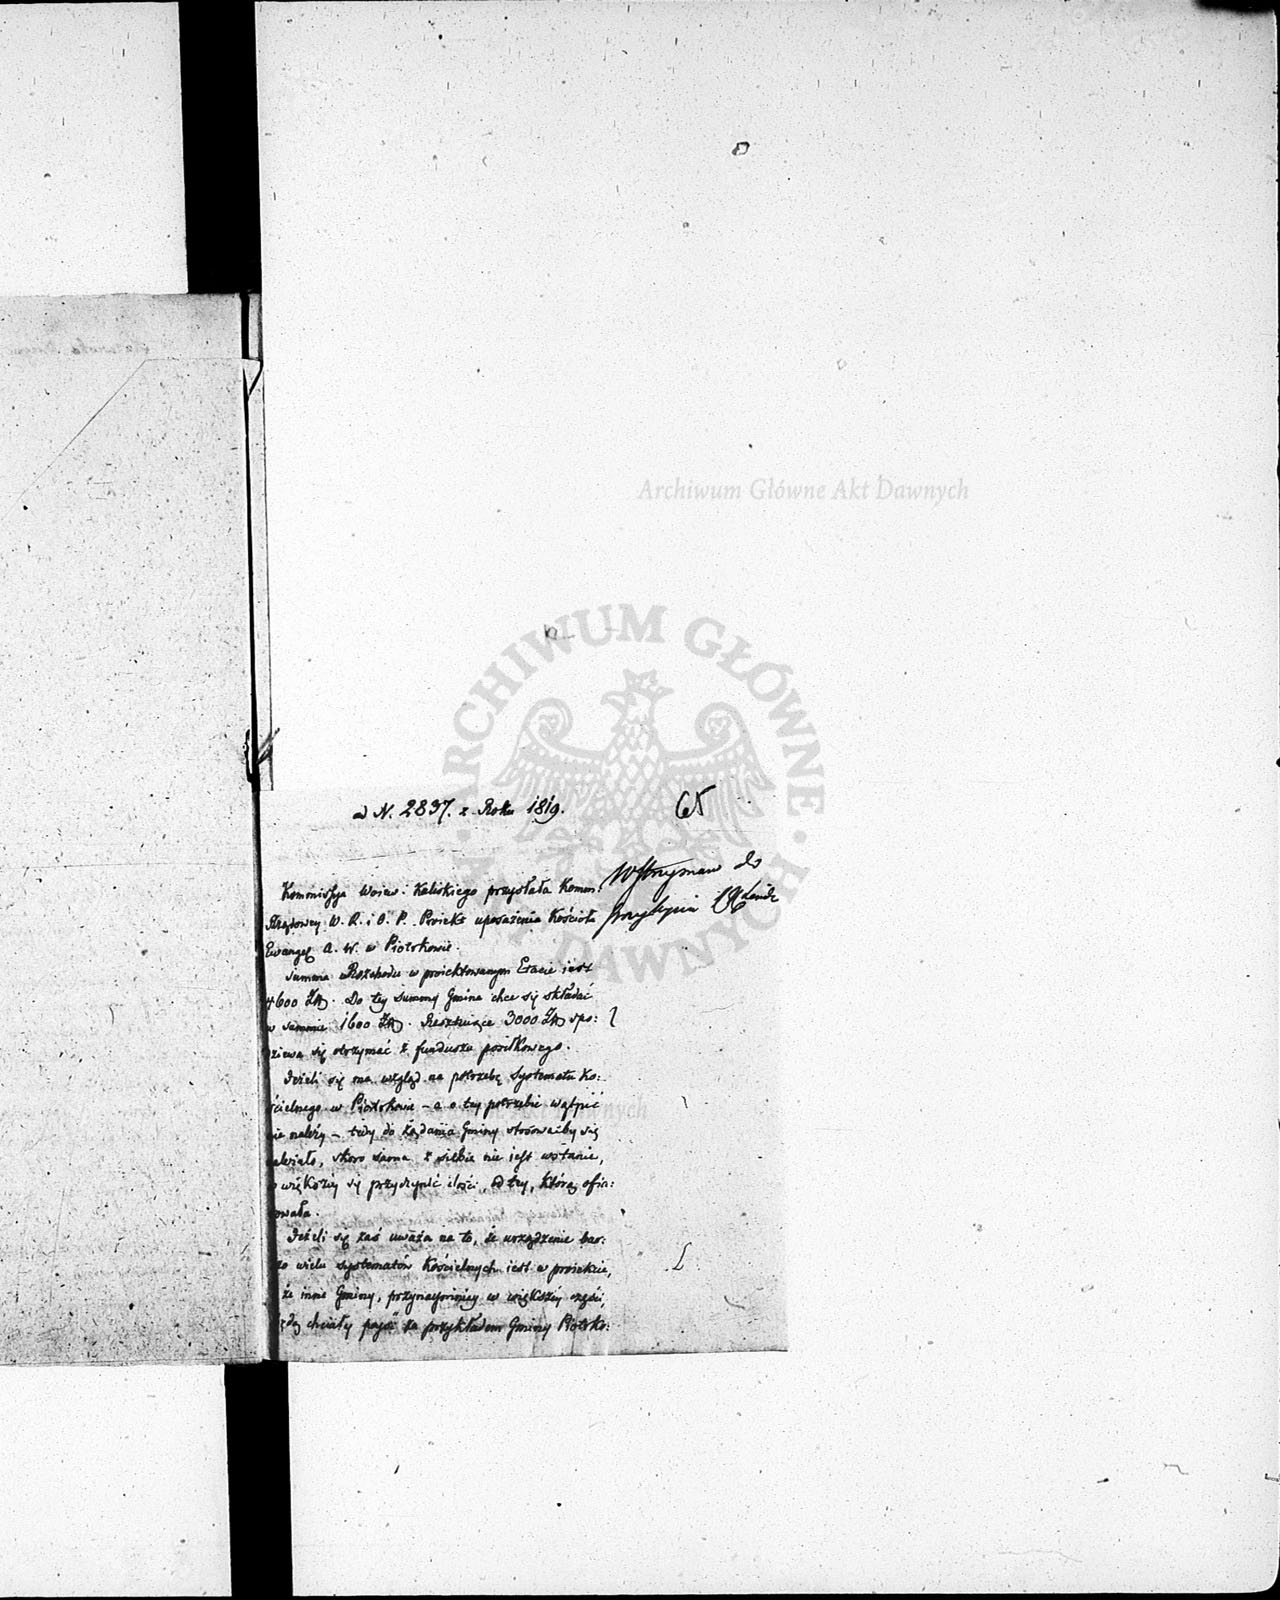 ad N. 2837. z Roku 1819.
65
Wstrzymano do
Kommissya Woiew. Kaliskiego przysłała Komm:
Rządowey W. R. i O. P. Proiekt uposażenia Kościoła
Ewangel. A. W. w Piotrkowie.
Summa Rozchodu w proiektowanym Etacie iest
4600 Zł. Do tey Summy Gmina chce się składać
w Summie 1600 Zł. Resztuiące 3000 Zł spo:
dziewa się otrzymać z funduszu posiłkowego.
Jeżeli się ma wzgląd na potrzebę Systematu Ko:
ścielnego w Piotrkowie – a o tey potrzebie wątpić
nie należy – tedy do żądania Gminy stosowaćby się
należało, skoro sama z siebie nie iest wstanie,
w większey się przyczynić ilości, od tey, którą ofia:
rowała.
Jeżeli się zaś uważa na to, że urządzenie bar:
dzo wielu systematów Kościelnych iest w proiekcie,
że inne Gminy, przynaymniey w większey części,
będą chciały poyść za przykładem Gminy Piotrko:
Archiwum Główne Akt Dawnych
ARCHIWUM GŁÓWNE AKT DAWNYCH